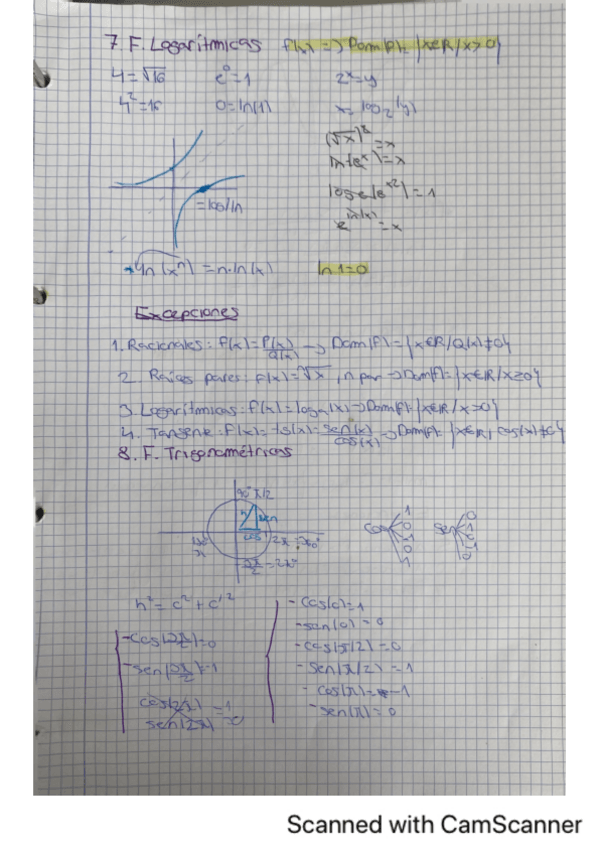 7 F. Logarítmicas f(x) => Dom(f)= {x∈R/x>0}
4=√16 e⁰=1 2ˣ=y
4²=16 0=ln(1) x=log₂(y)
(√x)²=x
ln(eˣ)=x
=log/ln
e^ln(x)=x
ln(xⁿ)=n·ln(x) ln 1=0
Excepciones
1. Racionales: f(x)=P(x)/Q(x) → Dom(f)={x∈R/Q(x)≠0}
2. Raíces pares: f(x)=ⁿ√x, n par → Dom(f)={x∈R/x≥0}
3. Logarítmicas: f(x)=logₐ(x) → Dom(f)={x∈R/x>0}
4. Tangente: f(x)=tg(x)=sen(x)/cos(x) → Dom(f)={x∈R, cos(x)≠0}
8. F. Trigonométricas
90° π/2
sen
cos
cos 1 0 -1 0 1
sen 0 1 0 -1 0
h²=c²+c'²
-cos(0)=1
-sen(0)=0
-cos(π/2)=0
-sen(π/2)=1
-cos(π)=-1
-sen(π)=0
cos(2π)=1
sen(2π)=0
Scanned with CamScanner